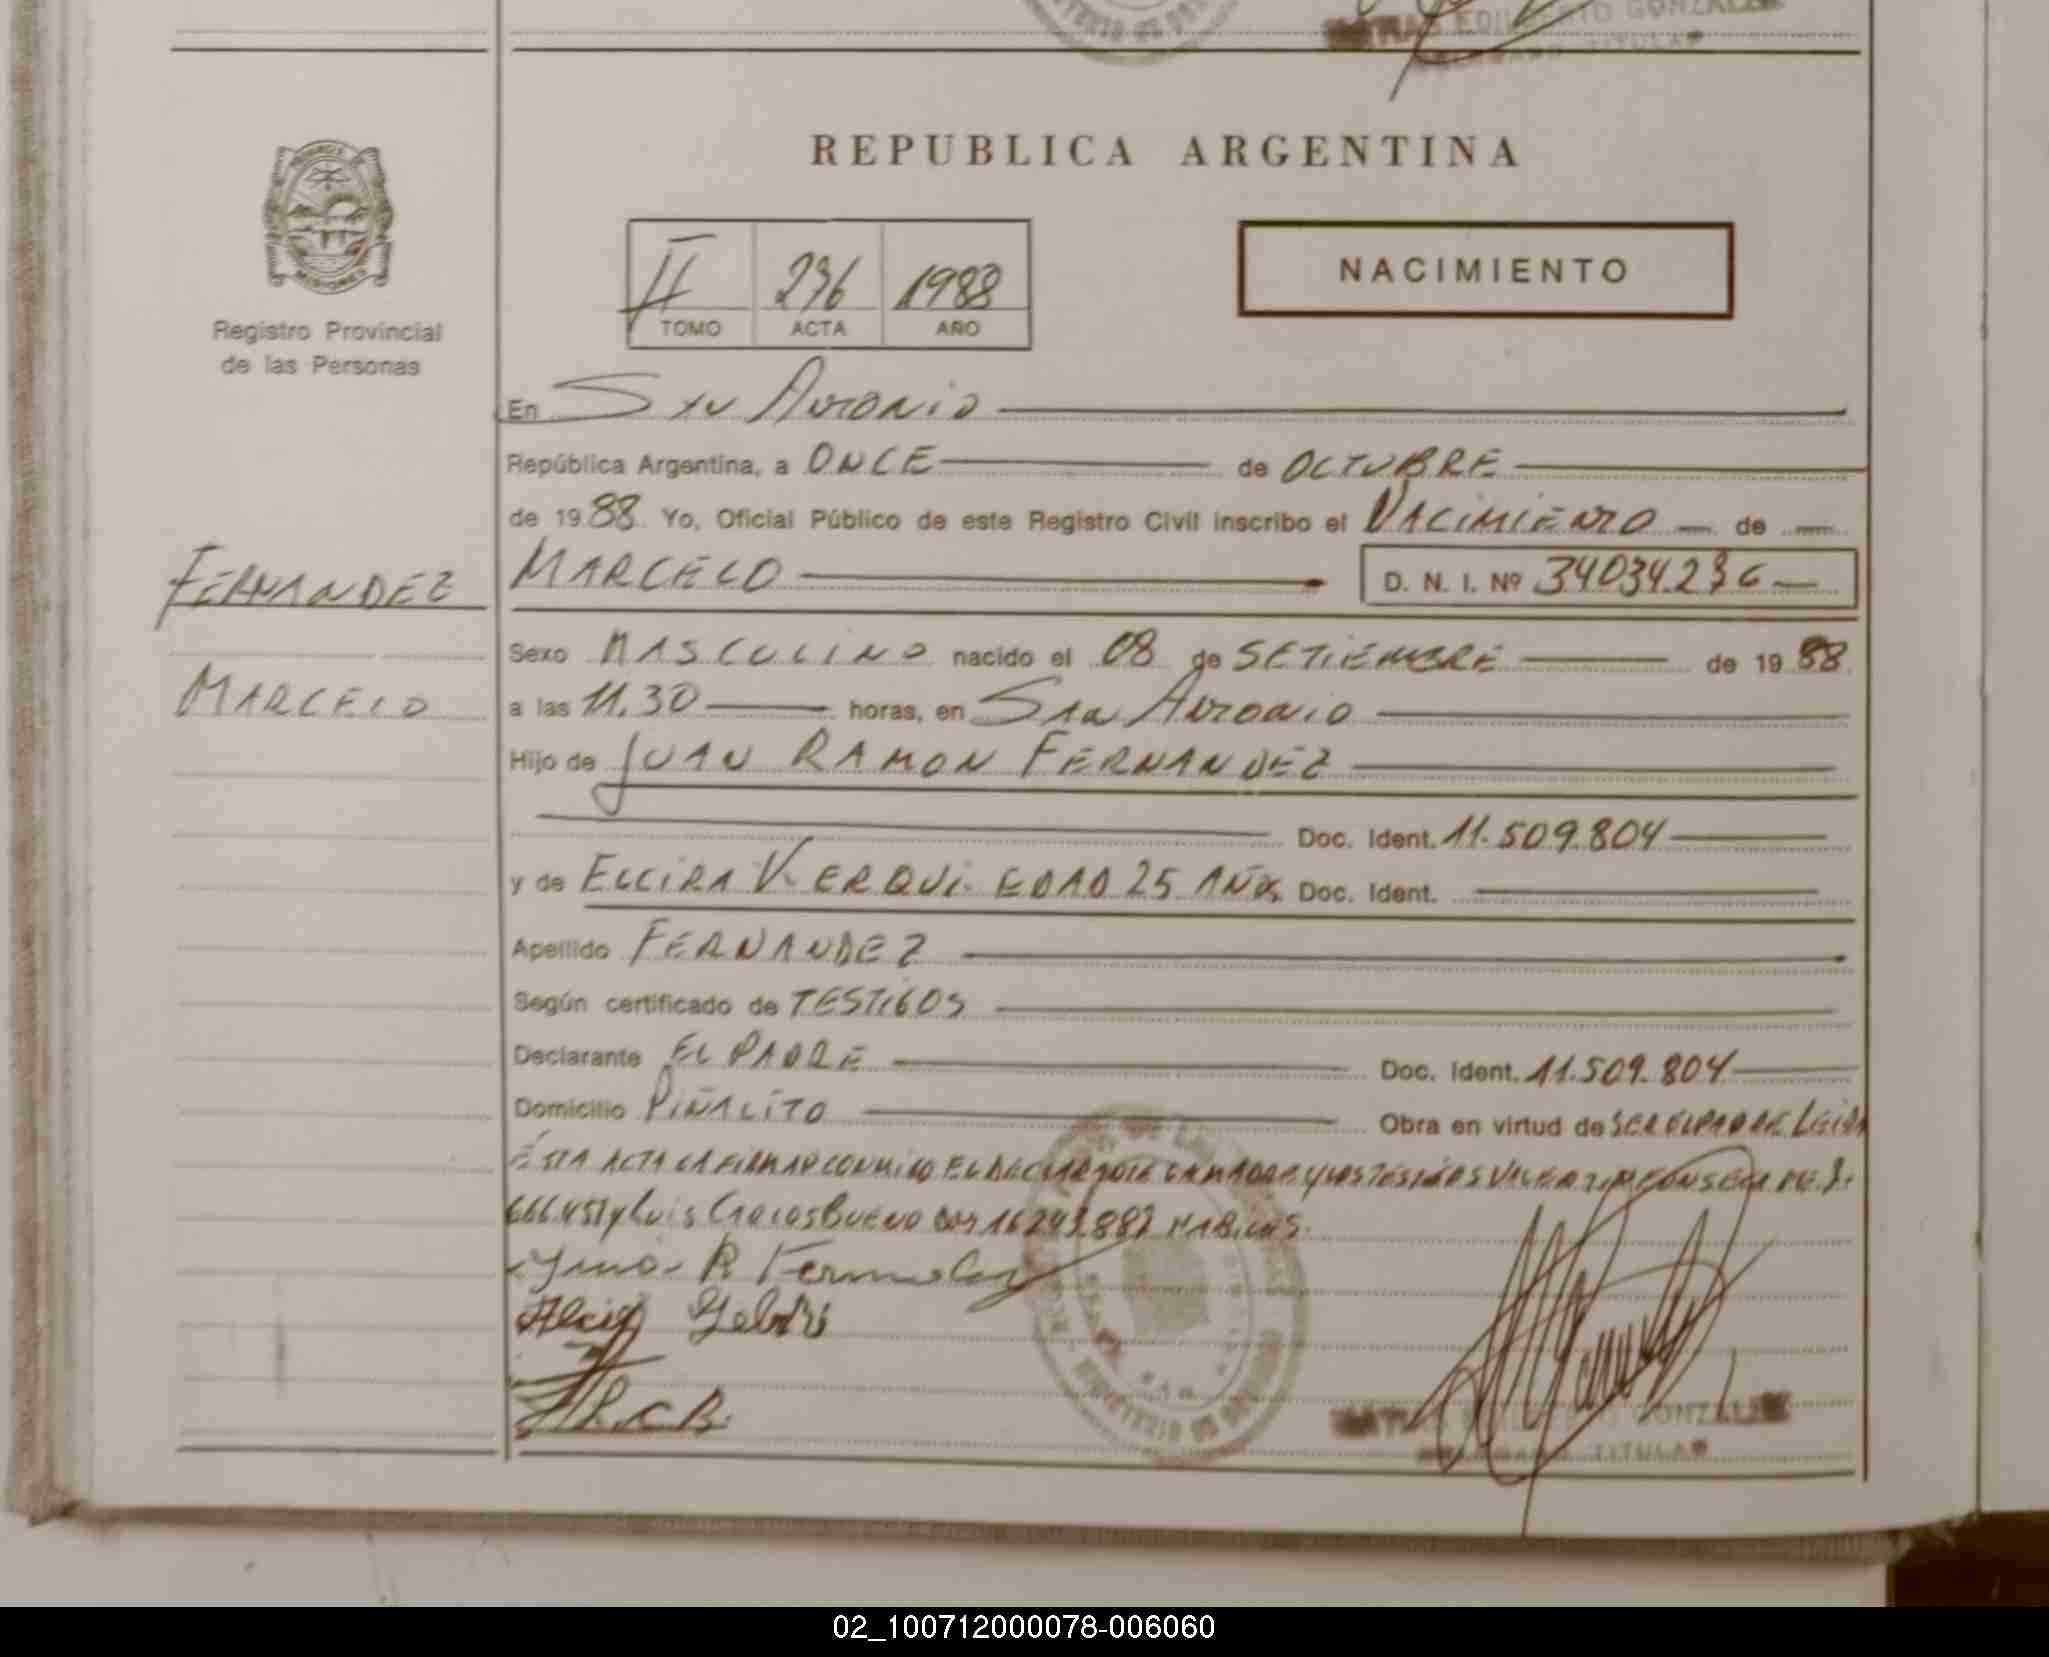 EDILBERTO GONZALEZ
TITULAR
REPUBLICA ARGENTINA
II 236 1988
TOMO ACTA AÑO
NACIMIENTO
Registro Provincial
de las Personas
En San Antonio
República Argentina, a ONCE de OCTUBRE
de 1988 Yo, Oficial Público de este Registro Civil inscribo el NACIMIENTO de
FERNANDEZ
MARCELO D. N. I. Nº 34034.236
Sexo MASCULINO nacido el 08 de SETIEMBRE de 1988
MARCELO
a las 11.30 horas, en San Antonio
Hijo de JUAN RAMON FERNANDEZ
Doc. Ident. 11.509.804
y de ELCIRA VERQUI. EDAD 25 AÑOS Doc. Ident.
Apellido FERNANDEZ
Según certificado de TESTIGOS
Declarante EL PADRE Doc. Ident. 11.509.804
Domicilio PIÑALITO Obra en virtud de SER EL PADRE LEIDA
ESTA ACTA LA FIRMAN CONMIGO EL DECLARANTE LA MADRE Y LOS TESTIGOS
Y Luis Carlos Bueno 16.249.887 HABILES.
R Fernandez
L.C.B.
GONZALEZ
TITULAR
02_100712000078-006060